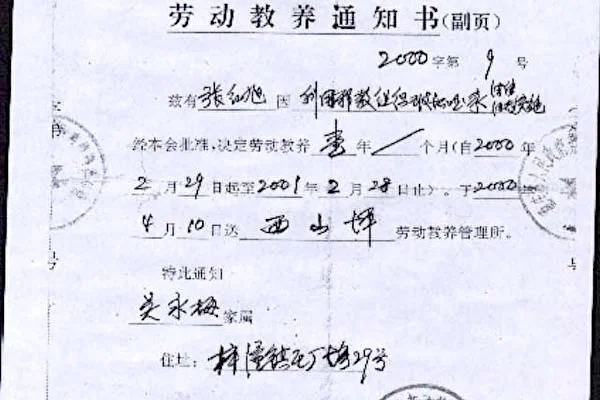 劳动教养通知书(副页)
2000字第 9 号
兹有 张红旭 因 利用邪教组织破坏 法律 实施
经本会批准，决定劳动教养 壹 年 / 个月(自 2000 年
2 月 29 日起至 2001 年 2 月 28 日止)。于 2000 年
4 月 10 日送 西山坪 劳动教养管理所。
特此通知
吴永梅 家属
住址: 梓潼镇 29号
号
号